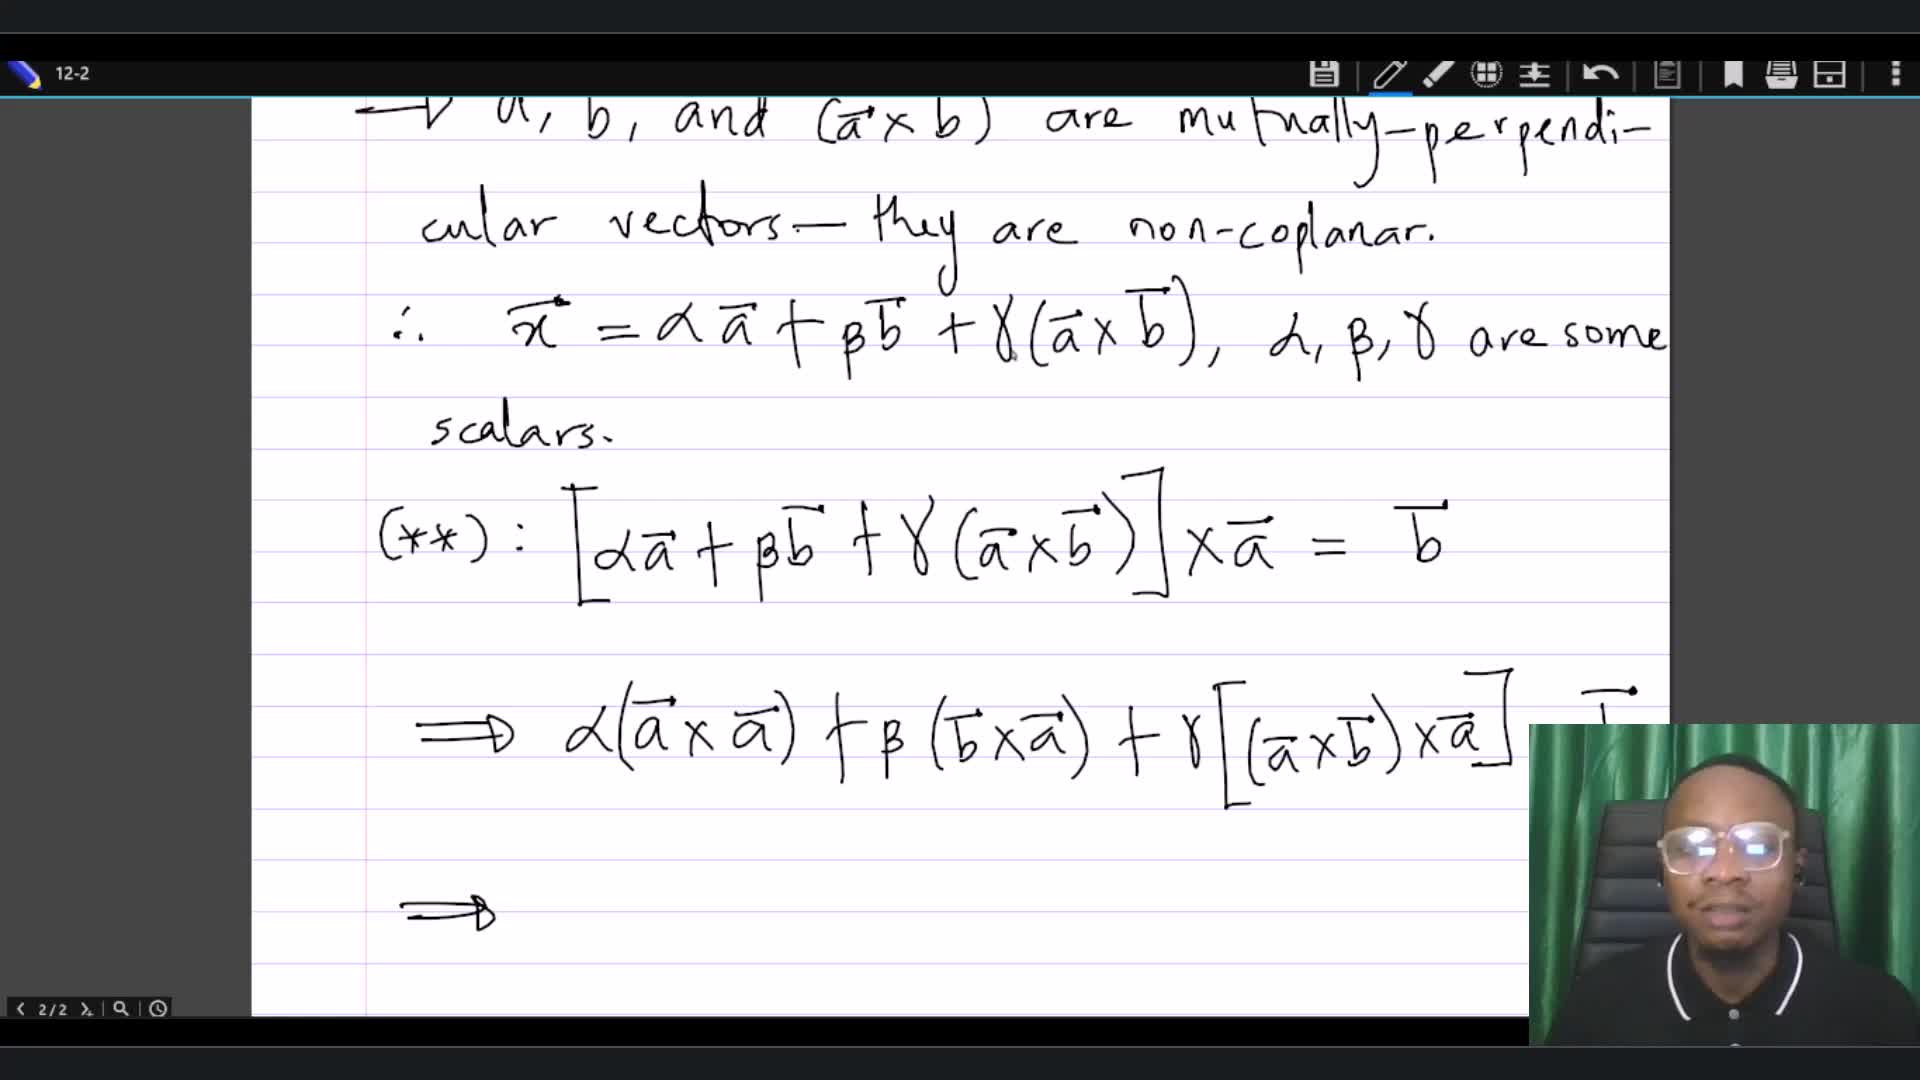 12-2
⟹ a, b, and (a⃗ × b) are mutually-perpendi-
cular vectors — they are non-coplanar.
∴ x⃗ = αa⃗ + βb⃗ + γ(a⃗ × b⃗), α, β, γ are some
scalars.
(**) : [αa⃗ + βb⃗ + γ(a⃗ × b⃗)] × a⃗ = b⃗
⟹ α(a⃗ × a⃗) + β(b⃗ × a⃗) + γ[(a⃗ × b⃗) × a⃗]
⟹
2/2